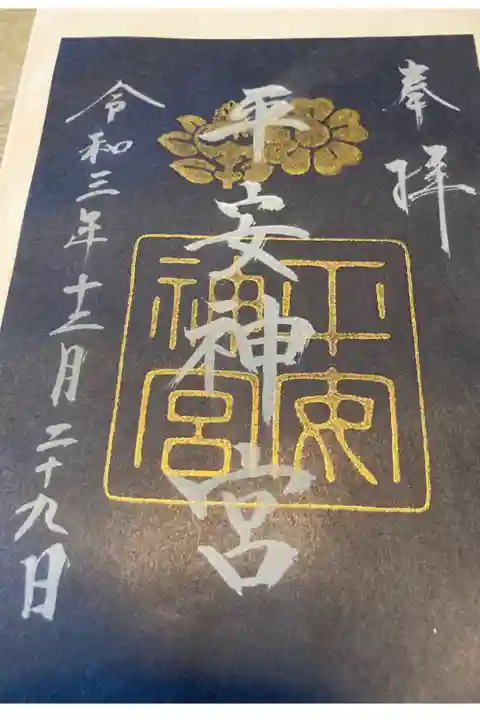 奉拝
平安神宮
平安神宮
令和三年十二月二十九日